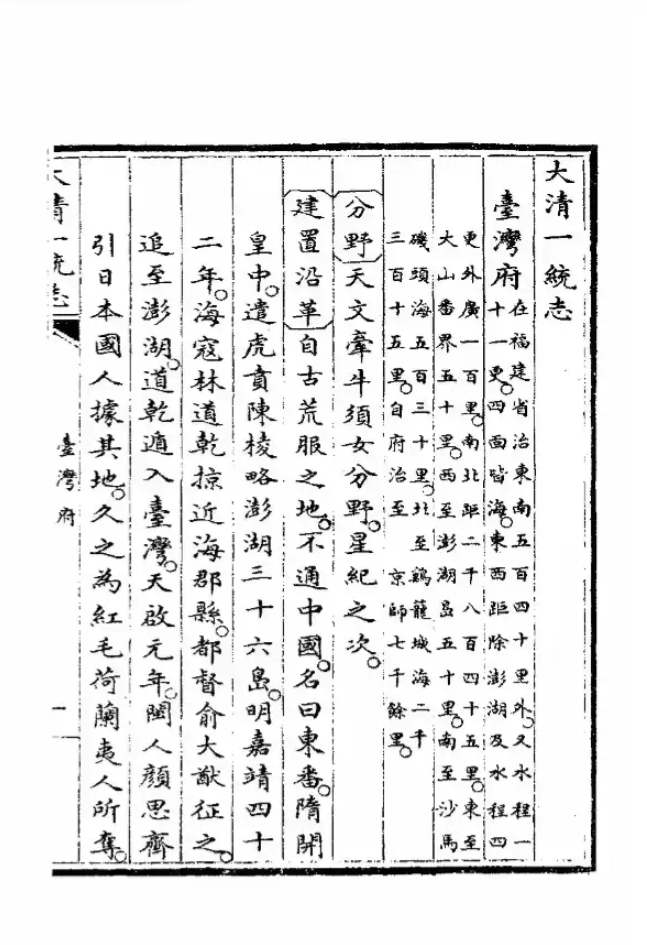 大清一統志
臺灣府
在福建省治東南五百四十里外。又水程一
十一更。四面皆海。東西距除澎湖及水程四
更外廣一百里。南北距二千八百四十五里。東至
大山番界五十里。西至澎湖島五十里。南至沙馬
磯頭海五百三十里。北至鷄籠城海二千
三百十五里。自府治至 京師七千餘里。
分野 天文牽牛須女分野。星紀之次。
建置沿革 自古荒服之地。不通中國。名曰東番。隋開
皇中。遣虎賁陳棱略澎湖三十六島。明嘉靖四十
二年。海寇林道乾掠近海郡縣。都督俞大猷征之。
追至澎湖。道乾遁入臺灣。天啟元年。閩人顏思齊
引日本國人據其地。久之為紅毛荷蘭夷人所奪。
大清一統志 臺灣府 一